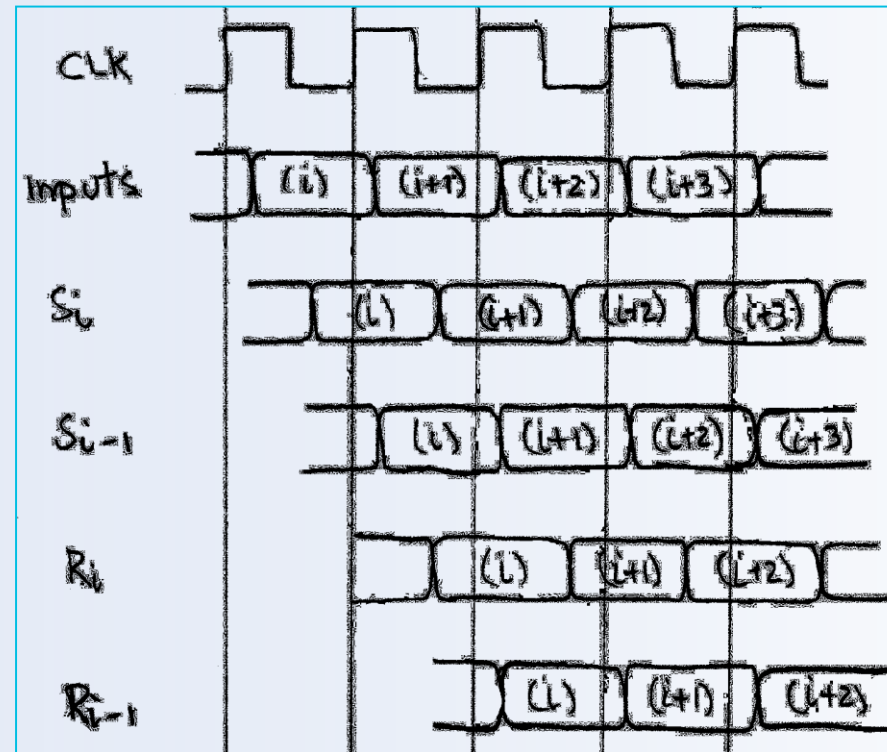 CLK
Inputs (i) (i+1) (i+2) (i+3)
Si (i) (i+1) (i+2) (i+3)
Si-1 (i) (i+1) (i+2) (i+3)
Ri (i) (i+1) (i+2)
Ri-1 (i) (i+1) (i+2)